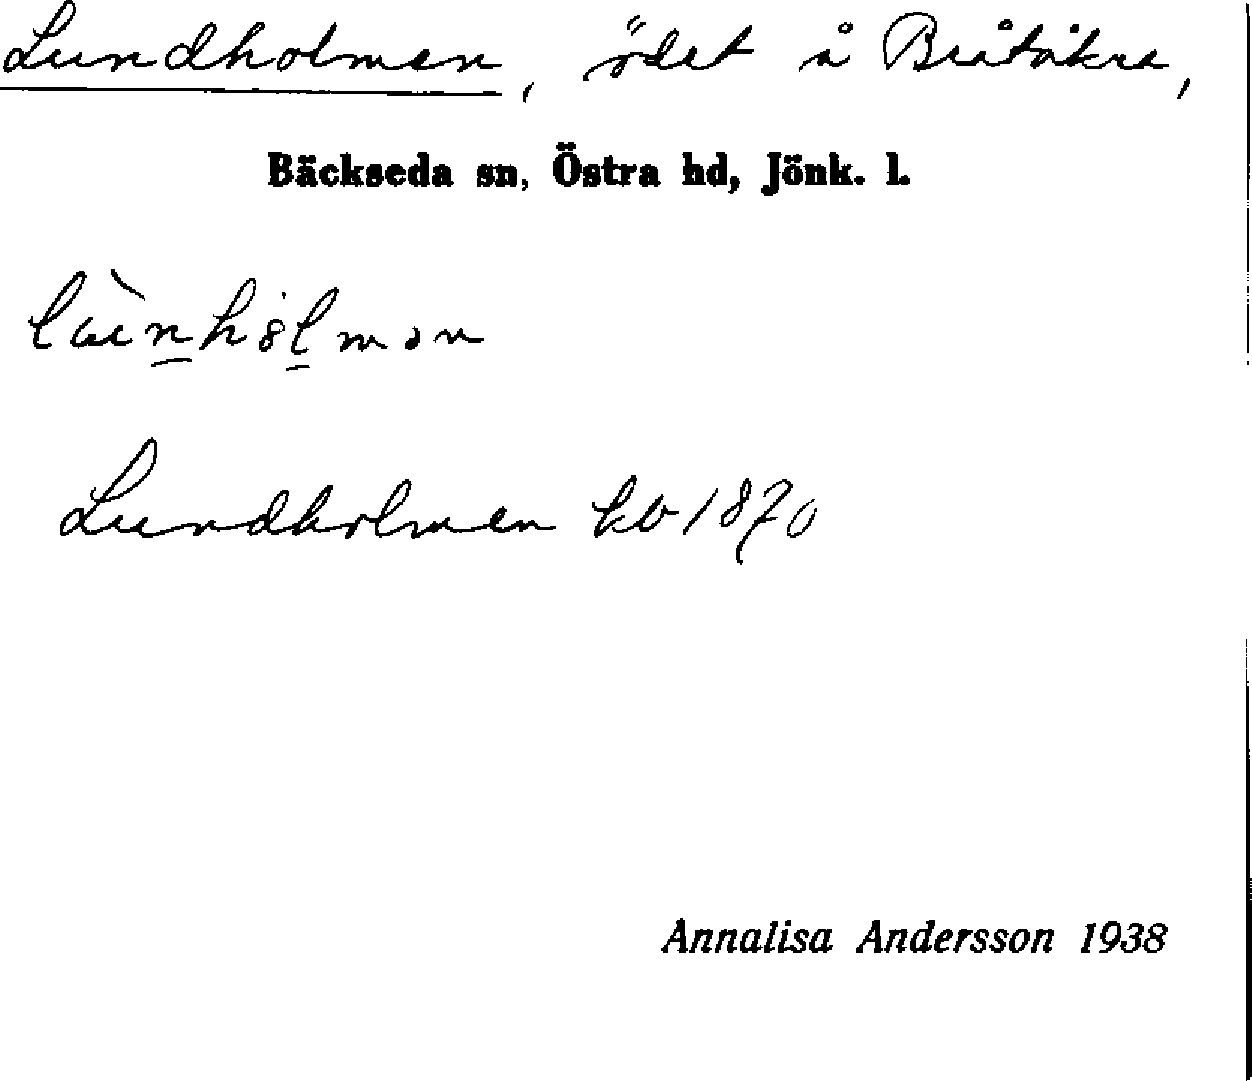 Lundholmen, ödet å Bråtåkra,
Bäckseda sn, Östra hd, Jönk. l.
Lundholmen kb 1870
Annalisa Andersson 1938